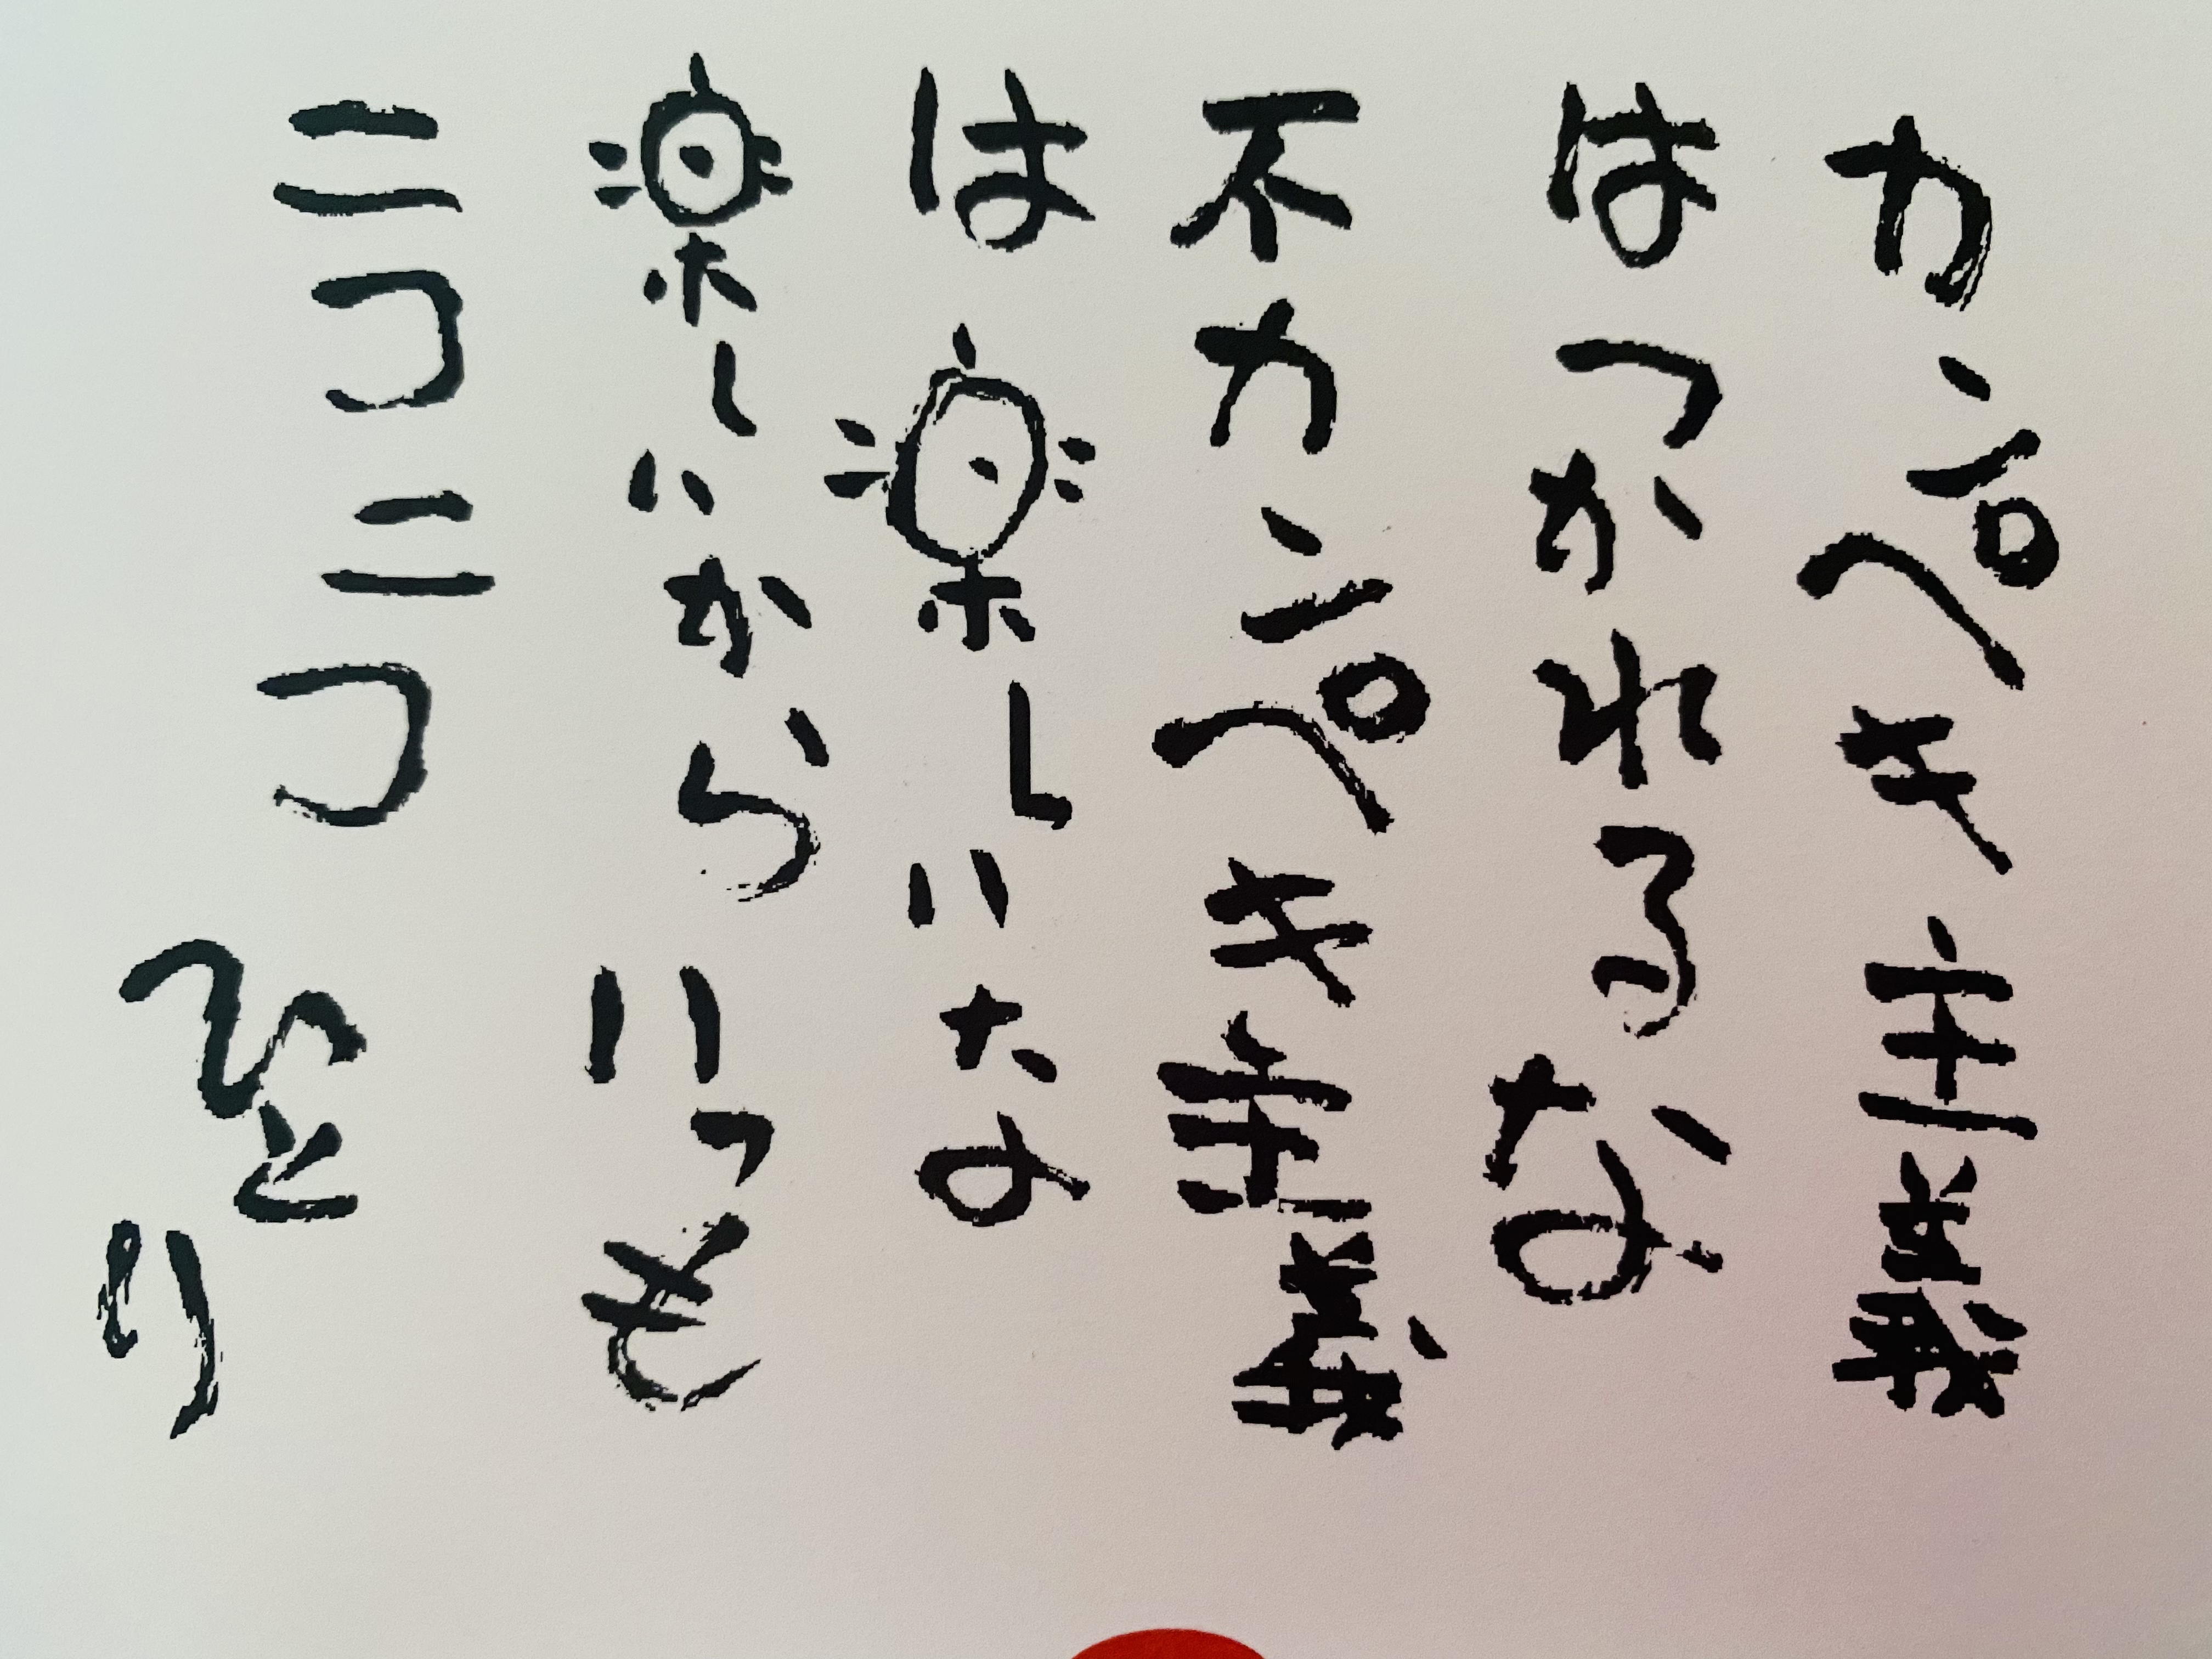 カンペキ主義
はつかれるな
不カンペキ主義
は楽しいなな
楽しいからいつも
ニコニコひとり